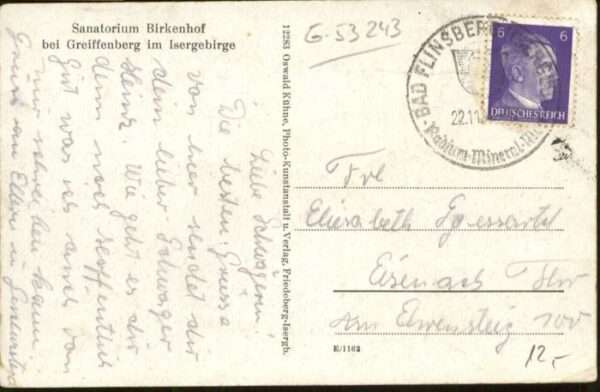 Sanatorium Birkenhof
bei Greiffenberg im Isergebirge
Liebe Schwägerin!
Die besten Grüsse
von hier sendet dir
dein lieber Schwager
Heinz. Wie geht es dir
denn noch hoffentlich
gut was ich auch von
mir schreiben kann.
Gruss an Eltern u.
12283 Oswald Kühne, Photo-Kunstanstalt u. Verlag, Friedeberg-Isergb.
G-53243
BAD FLINSBERG
22.11.
Radium-Mineral-
6 6
DEUTSCHES REICH
Frl
Elisabeth
Eisenach Thür
Am 100
E/1162
12,-